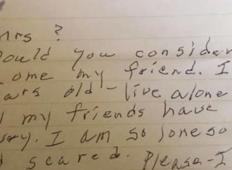 Mrs ?
ould you consider
ome my friend. I
ars old - live alone
l my friends have
I am so lone so
d scared. Please - I